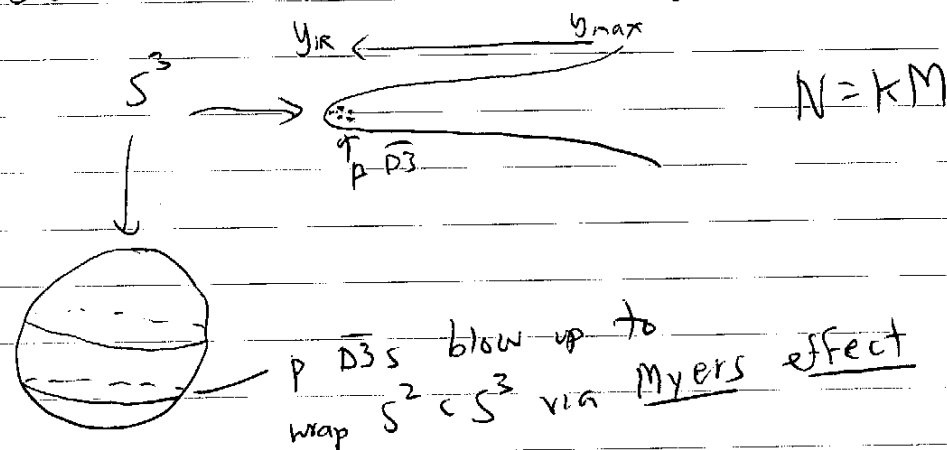 y_IR ← y_max
S³ → N = KM
p D̅3̅
p D̅3̅s blow up to
wrap S² ⊂ S³ via Myers effect